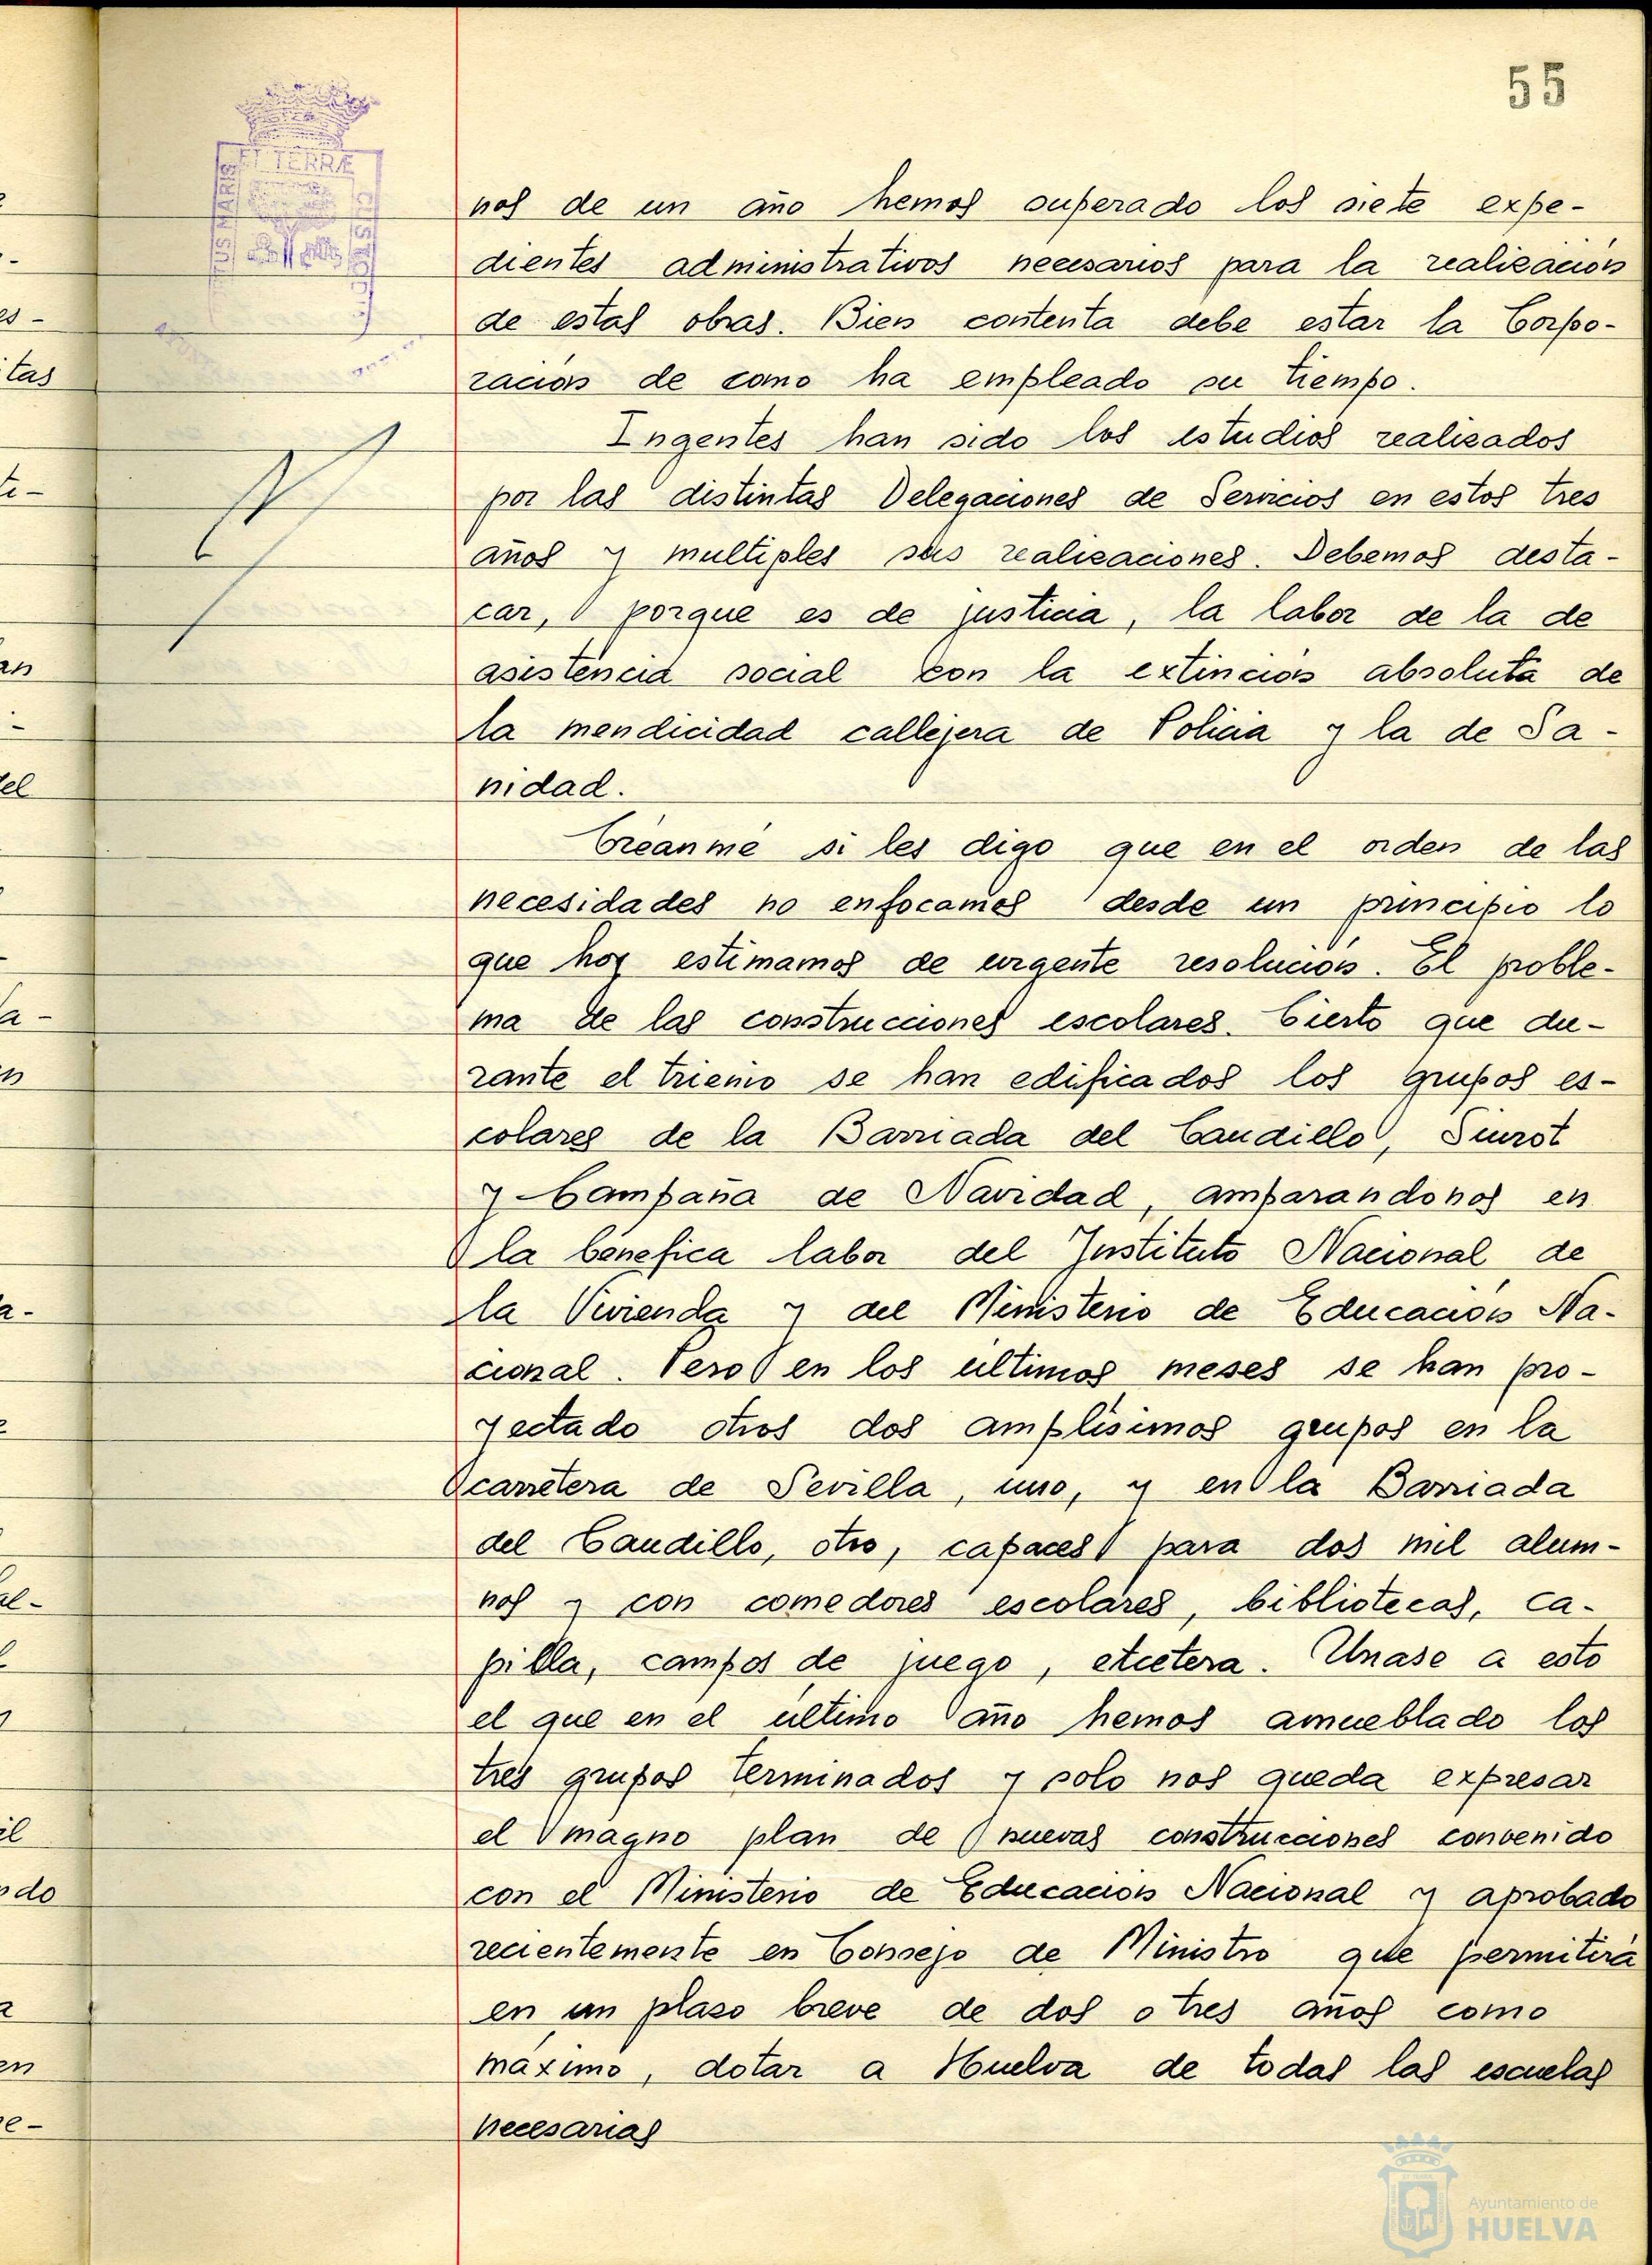 55
ET TERRÆ
nos de un año hemos superado los siete expe-
dientes administrativos necesarios para la realización
de estas obras. Bien contenta debe estar la Corpo-
ración de como ha empleado su tiempo.
Ingentes han sido los estudios realizados
por las distintas Delegaciones de Servicios en estos tres
años y multiples sus realizaciones. Debemos desta-
car, porque es de justicia, la labor de la de
asistencia social con la extinción absoluta de
la mendicidad callejera de Policia y la de Sa-
nidad.
Créanme si les digo que en el orden de las
necesidades no enfocamos desde un principio lo
que hoy estimamos de urgente resolución. El proble-
ma de las construcciones escolares. Cierto que du-
rante el trienio se han edificados los grupos es-
colares de la Barriada del Caudillo, Siurot
y Campaña de Navidad, amparandonos en
la bénefica labor del Instituto Nacional de
la Vivienda y del Ministerio de Educación Na-
cional. Pero en los ultimos meses se han pro-
yectado otros dos amplísimos grupos en la
carretera de Sevilla, uno, y en la Barriada
del Caudillo, otro, capaces para dos mil alum-
nos y con comedores escolares, bibliotecas, ca-
pilla, campos de juego, etcetera. Unase a esto
el que en el último año hemos amueblado los
tres grupos terminados y solo nos queda expresar
el magno plan de nuevas construcciones convenido
con el Ministerio de Educacion Nacional y aprobado
recientemente en Consejo de Ministro que permitirá
en un plaso breve de dos o tres años como
máximo, dotar a Huelva de todas las escuelas
necesarias
Ayuntamiento de
HUELVA